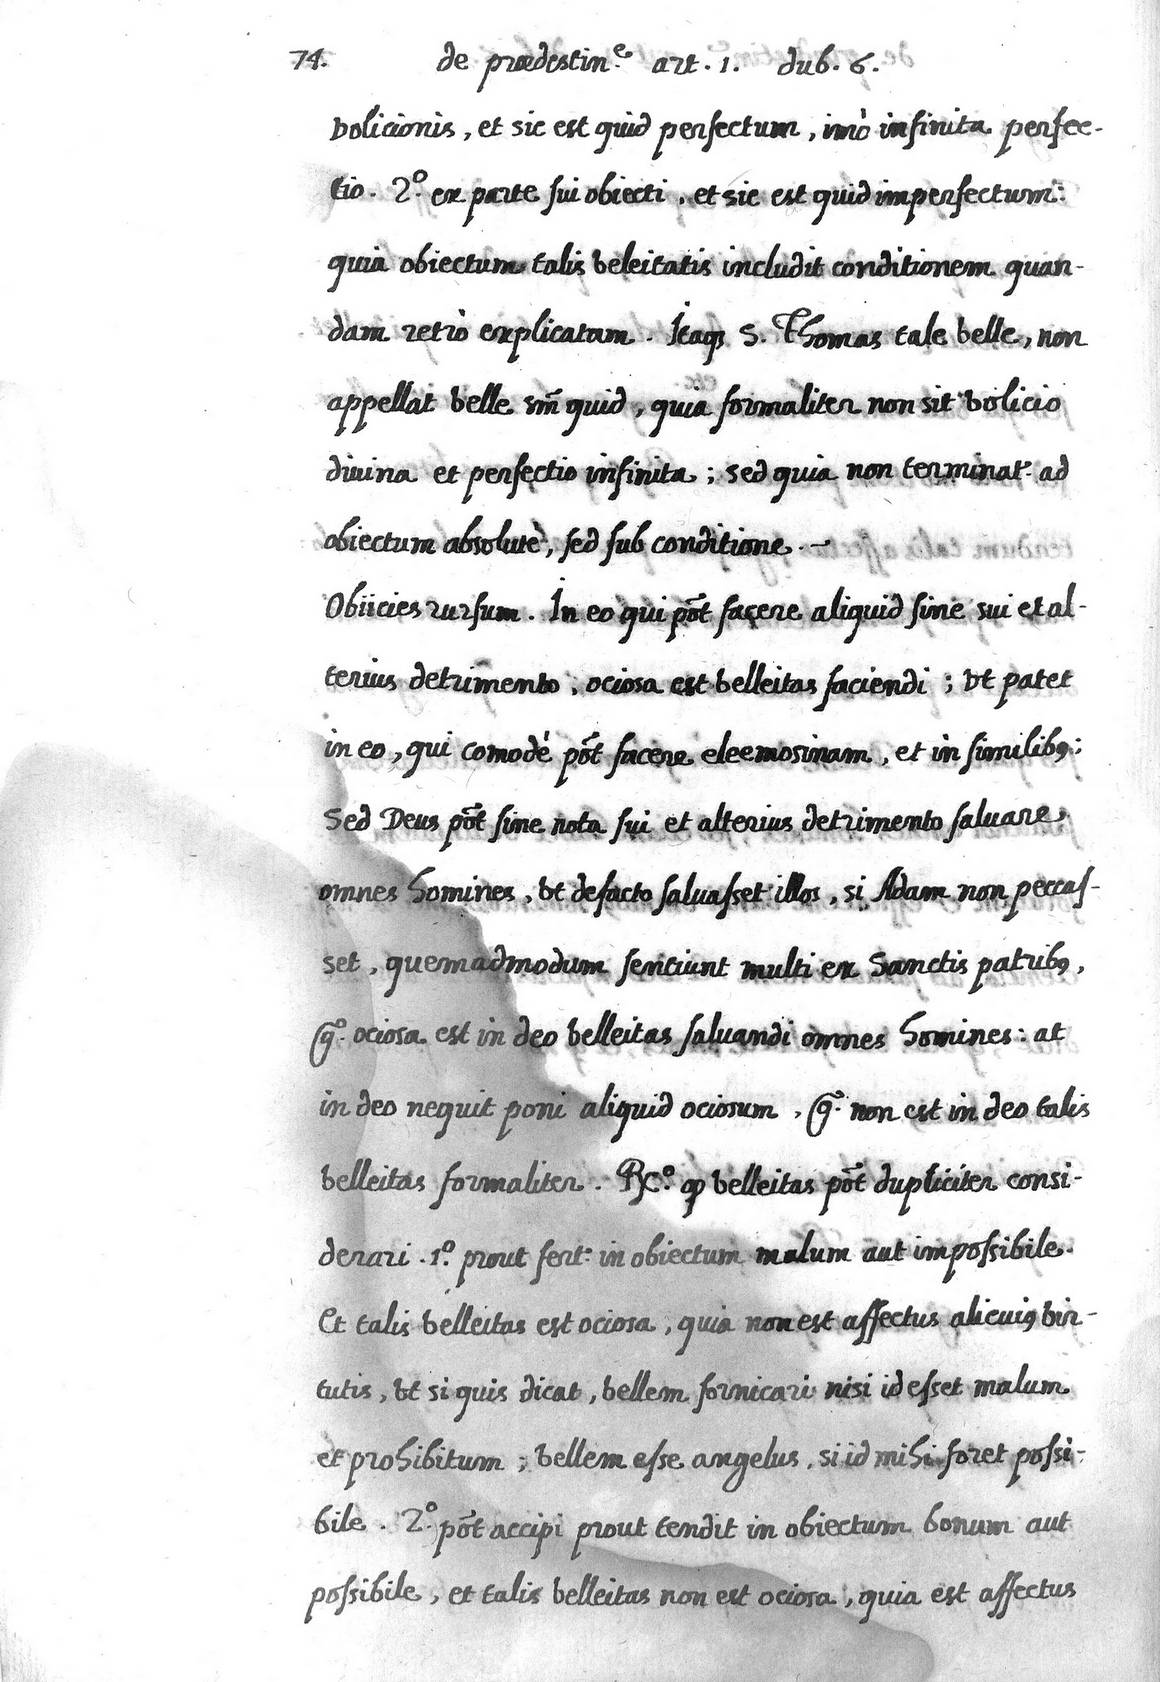 74. de prædestin.e art. 1. dub. 6.
volicionis, et sic est quid perfectum, imò infinita perfec-
tio. 2.º ex parte sui obiecti, et sic est quid imperfectum:
quia obiectum talis veleitatis includit conditionem quan-
dam retrò explicatam. Itaqȝ S. Thomas tale velle, non
appellat velle sm̃ quid, quia formaliter non sit volicio
diuina et perfectio infinita; sed quia non terminat.r ad
obiectum absolutè, sed sub conditione. —
Obiicies rursum. In eo qui põt façere aliquid sine sui et al-
terius detrimento, ociosa est velleitas faciendi; vt patet
in eo, qui comodè põt facere eleemosinam, et in similibꝰ:
Sed Deus põt sine nota sui et alterius detrimento saluare
omnes homines, vt defacto saluasset illos, si Adam non peccas-
set, quemadmodum senciunt multi ex Sanctis patribꝰ,
gº. ociosa est in deo velleitas saluandi omnes homines: at
in deo nequit poni aliquid ociosum, gº. non est in deo talis
velleitas formaliter. Rx.º qp velleitas põt dupliciter consi-
derari. 1.º prout fert.r in obiectum malum aut impossibile.
Et talis velleitas est ociosa, quia non est affectus alicuiꝰ vir-
tutis, vt si quis dicat, vellem fornicari nisi id esset malum
et prohibitum; vellem esse angelus, si id mihi foret possi-
bile. 2.º põt accipi prout tendit in obiectum bonum aut
possibile, et talis velleitas non est ociosa, quia est affectus